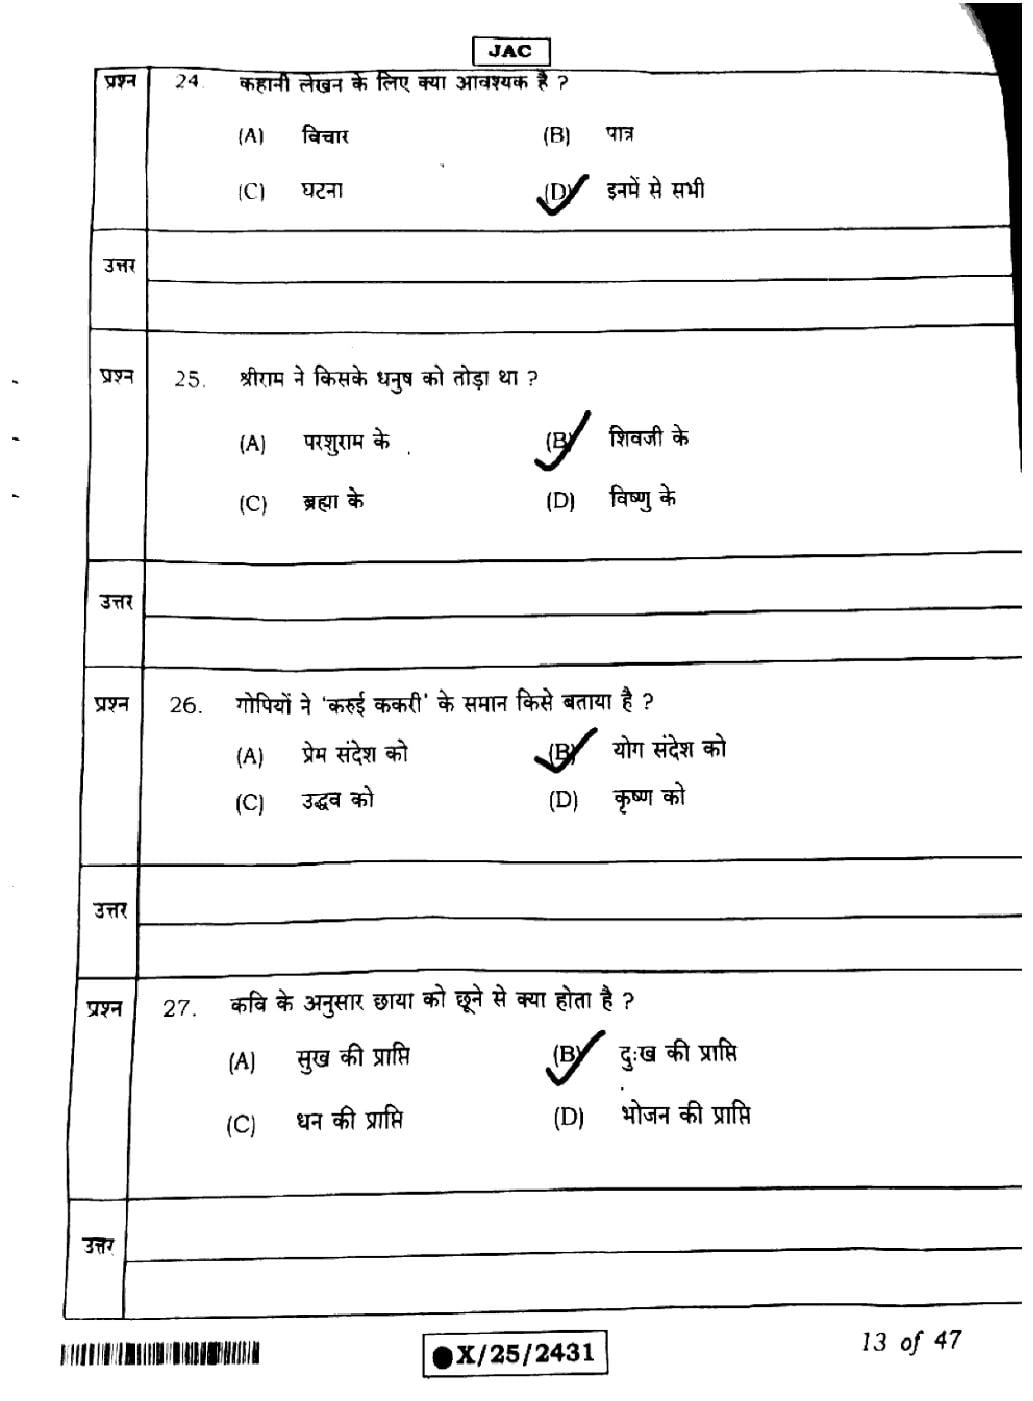 JAC
प्रश्न 24. कहानी लेखन के लिए क्या आवश्यक है ?
(A) विचार (B) पात्र
(C) घटना (D) इनमें से सभी
उत्तर
प्रश्न 25. श्रीराम ने किसके धनुष को तोड़ा था ?
(A) परशुराम के (B) शिवजी के
(C) ब्रह्मा के (D) विष्णु के
उत्तर
प्रश्न 26. गोपियों ने 'करुई ककरी' के समान किसे बताया है ?
(A) प्रेम संदेश को (B) योग संदेश को
(C) उद्धव को (D) कृष्ण को
उत्तर
प्रश्न 27. कवि के अनुसार छाया को छूने से क्या होता है ?
(A) सुख की प्राप्ति (B) दुःख की प्राप्ति
(C) धन की प्राप्ति (D) भोजन की प्राप्ति
उत्तर
X/25/2431
13 of 47